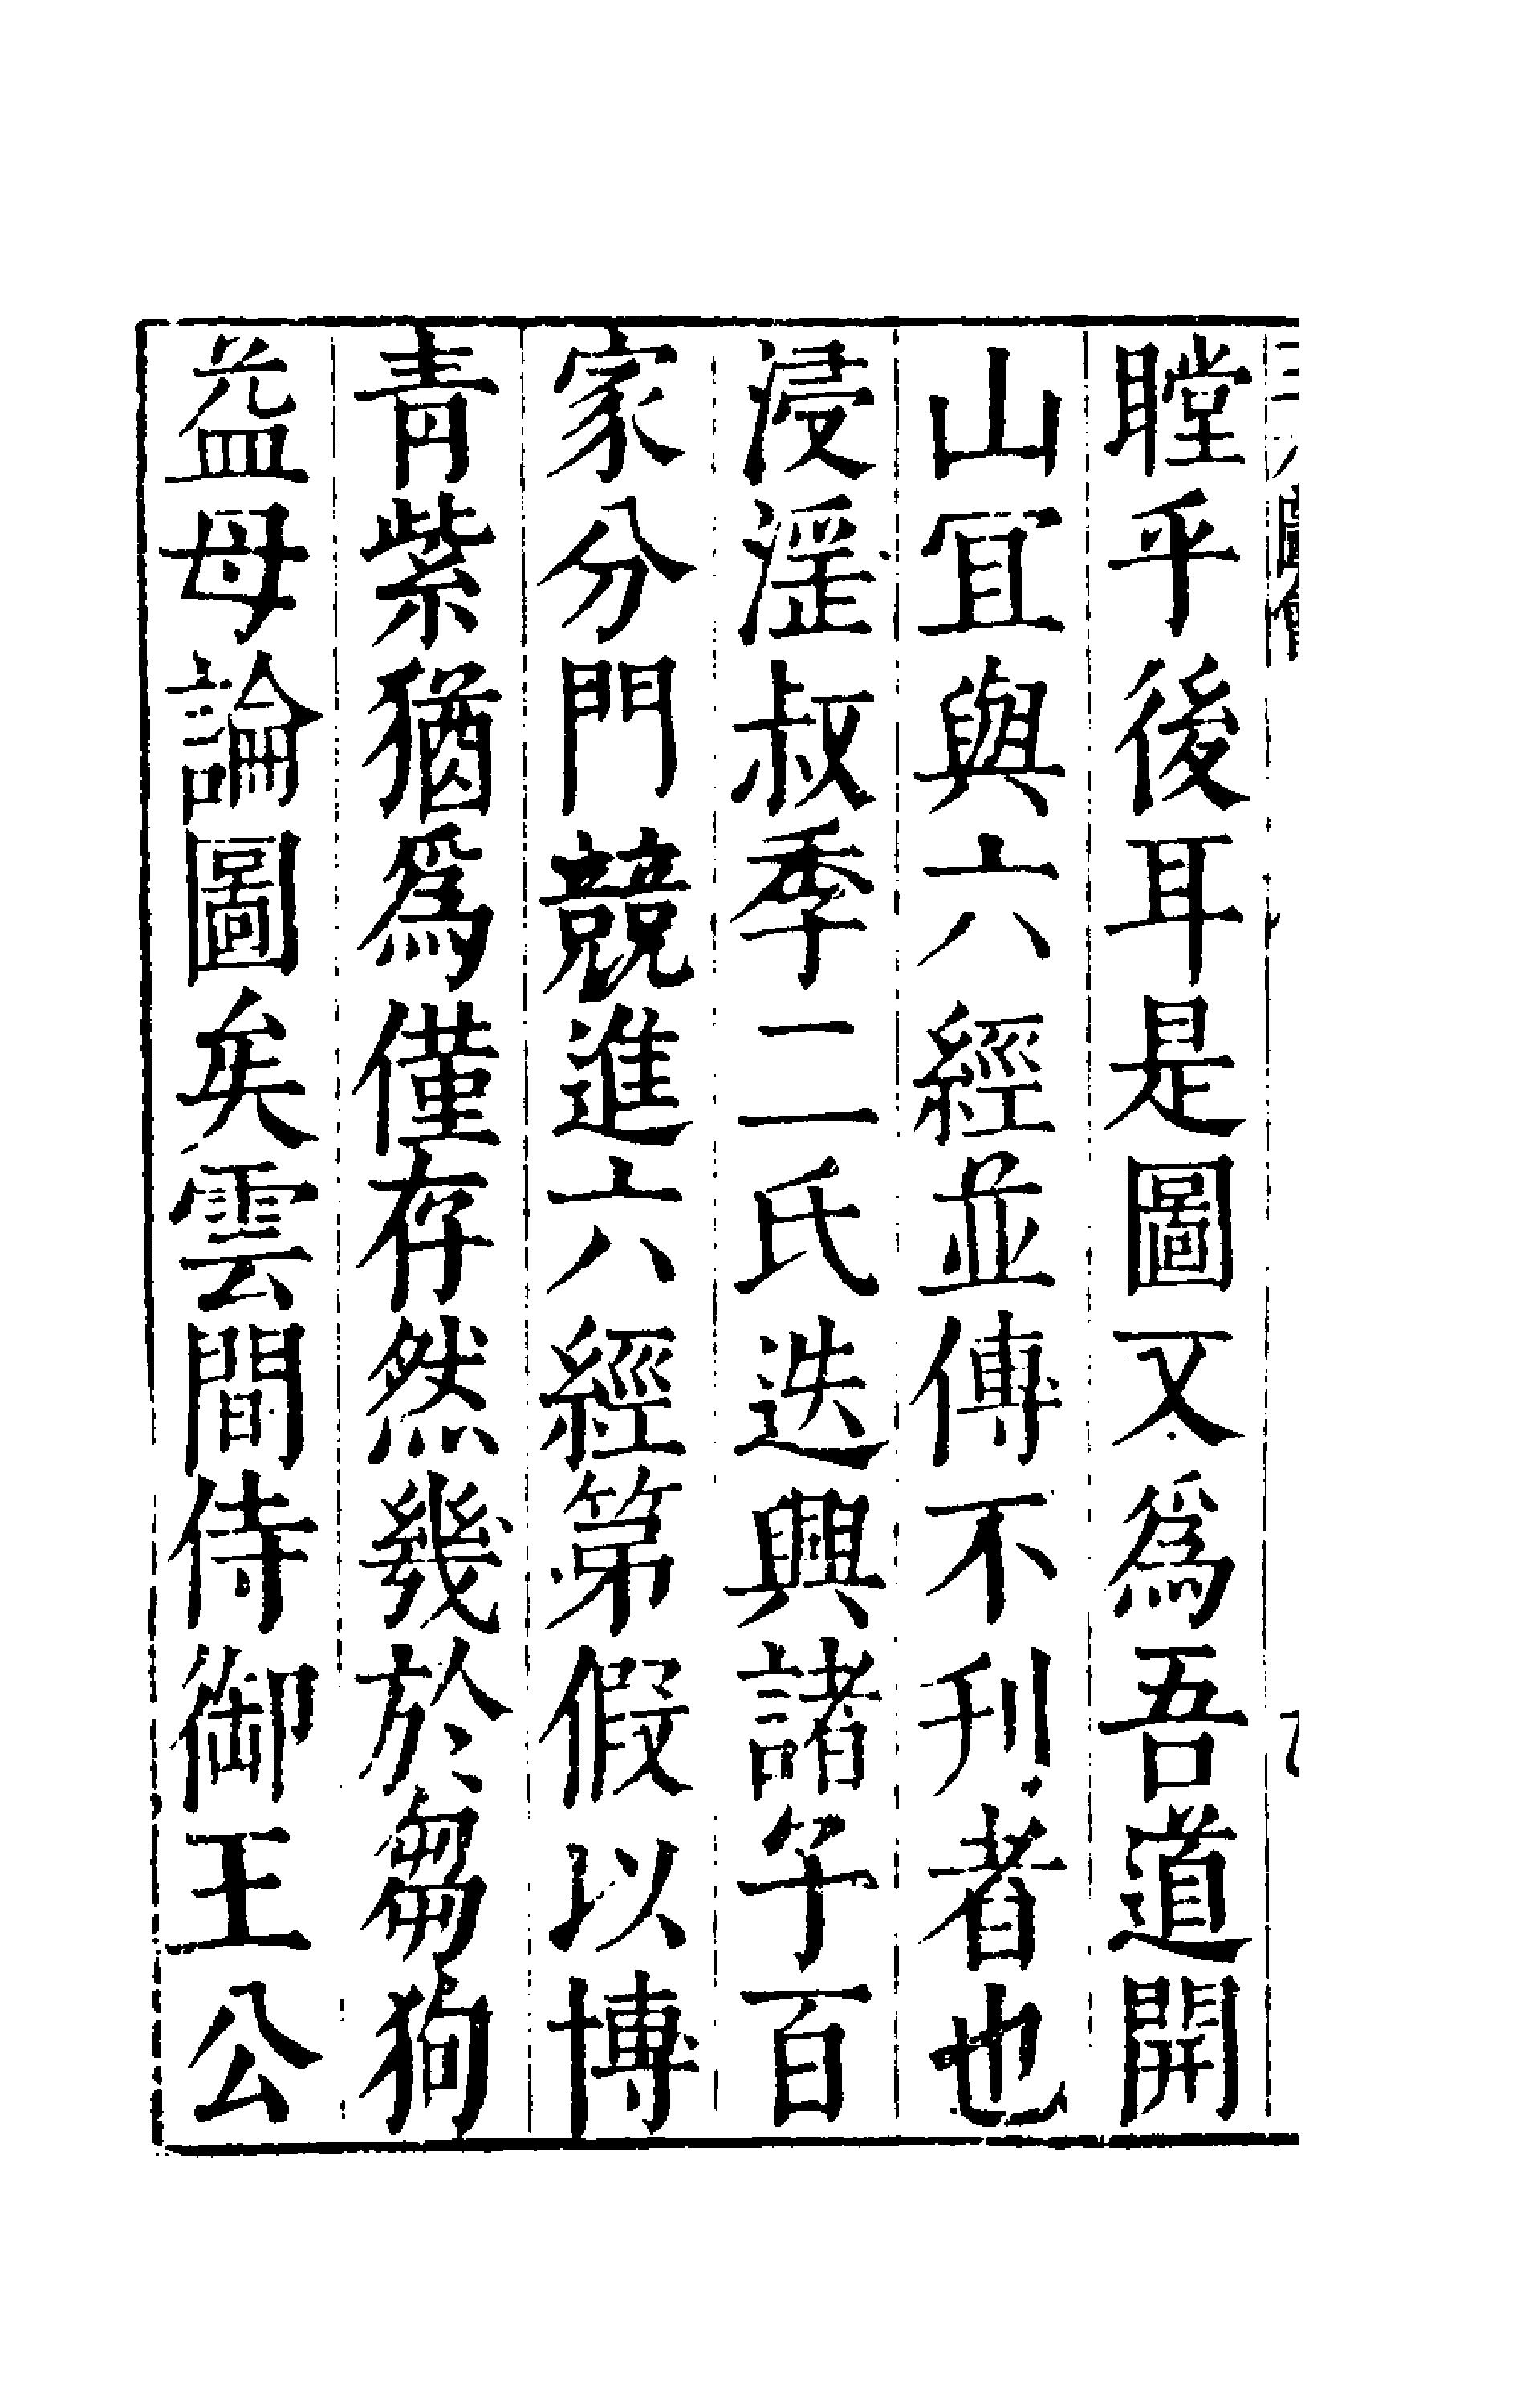 瞠乎後耳是圖又為吾道開
山冝與六經並傳不刋者也
浸滛叔季二氏迭興諸子百
家分門競進六經第假以博
青紫猶為僅存然幾於芻狗
益母論圖矣雲間侍御王公